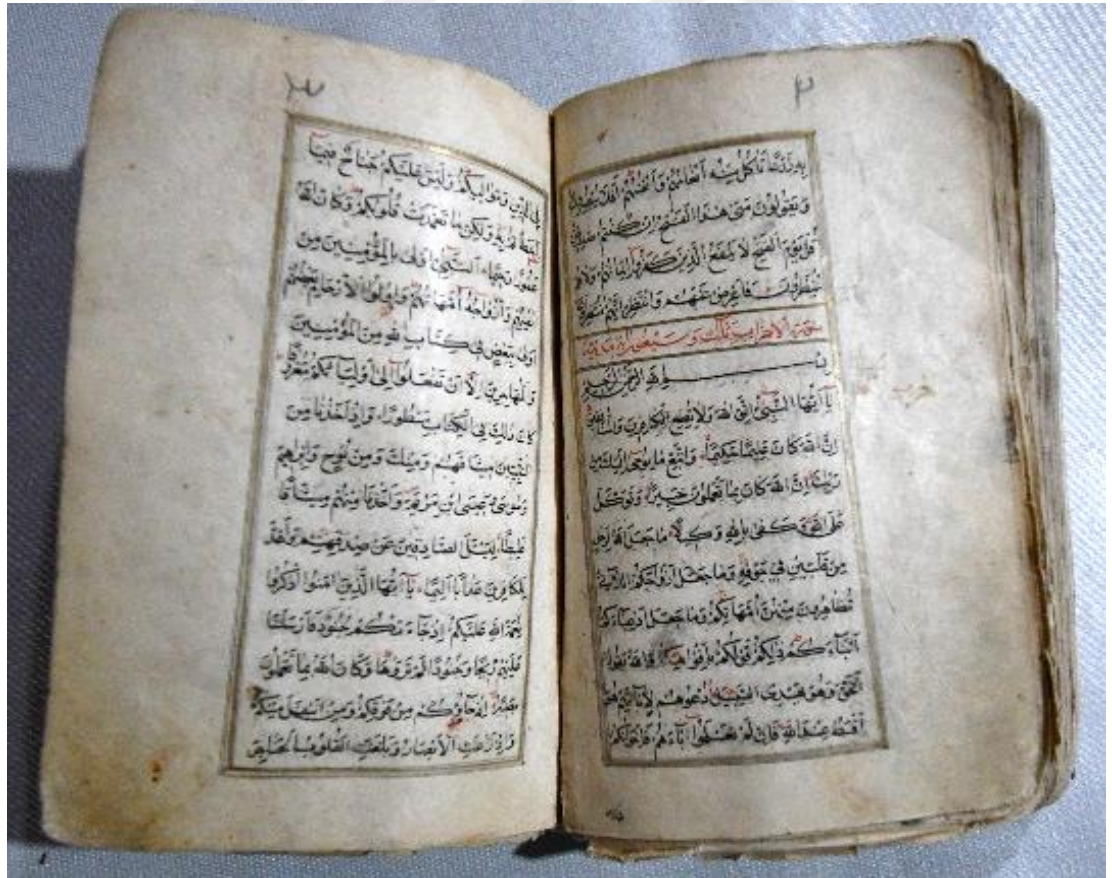 ٢
بِهِ زَرْعًا تَأْكُلُ مِنْهُ أَنْعَامُهُمْ وَأَنْفُسُهُمْ أَفَلَا يُبْصِرُونَ
وَيَقُولُونَ مَتٰى هٰذَا الْفَتْحُ اِنْ كُنْتُمْ صَادِقِينَ
قُلْ يَوْمَ الْفَتْحِ لَا يَنْفَعُ الَّذِينَ كَفَرُوا اِيمَانُهُمْ وَلَا هُمْ
يُنْظَرُونَ فَاَعْرِضْ عَنْهُمْ وَانْتَظِرْ اِنَّهُمْ مُنْتَظِرُونَ
سورة الاحزاب ثلث وسبعون اية مدنية
بِسْمِ اللهِ الرَّحْمٰنِ الرَّحِيمِ
يَا اَيُّهَا النَّبِيُّ اتَّقِ اللهَ وَلَا تُطِعِ الْكَافِرِينَ وَالْمُنَافِقِينَ
اِنَّ اللهَ كَانَ عَلِيمًا حَكِيمًا وَاتَّبِعْ مَا يُوحٰى اِلَيْكَ مِنْ
رَبِّكَ اِنَّ اللهَ كَانَ بِمَا تَعْمَلُونَ خَبِيرًا وَتَوَكَّلْ
عَلَى اللهِ وَكَفٰى بِاللهِ وَكِيلًا مَا جَعَلَ اللهُ لِرَجُلٍ
مِنْ قَلْبَيْنِ فِي جَوْفِهِ وَمَا جَعَلَ اَزْوَاجَكُمُ اللَّائِي
تُظَاهِرُونَ مِنْهُنَّ اُمَّهَاتِكُمْ وَمَا جَعَلَ اَدْعِيَاءَكُمْ
اَبْنَاءَكُمْ ذٰلِكُمْ قَوْلُكُمْ بِاَفْوَاهِكُمْ وَاللهُ يَقُولُ
الْحَقَّ وَهُوَ يَهْدِي السَّبِيلَ اُدْعُوهُمْ لِاٰبَائِهِمْ هُوَ
اَقْسَطُ عِنْدَ اللهِ فَاِنْ لَمْ تَعْلَمُوا اٰبَاءَهُمْ فَاِخْوَانُكُمْ
٣
فِي الدِّينِ وَمَوَالِيكُمْ وَلَيْسَ عَلَيْكُمْ جُنَاحٌ فِيمَا
اَخْطَأْتُمْ بِهِ وَلٰكِنْ مَا تَعَمَّدَتْ قُلُوبُكُمْ وَكَانَ اللهُ
غَفُورًا رَحِيمًا اَلنَّبِيُّ اَوْلٰى بِالْمُؤْمِنِينَ مِنْ
اَنْفُسِهِمْ وَاَزْوَاجُهُ اُمَّهَاتُهُمْ وَاُولُوا الْاَرْحَامِ بَعْضُهُمْ
اَوْلٰى بِبَعْضٍ فِي كِتَابِ اللهِ مِنَ الْمُؤْمِنِينَ
وَالْمُهَاجِرِينَ اِلَّا اَنْ تَفْعَلُوا اِلٰى اَوْلِيَائِكُمْ مَعْرُوفًا
كَانَ ذٰلِكَ فِي الْكِتَابِ مَسْطُورًا وَاِذْ اَخَذْنَا مِنَ
النَّبِيِّينَ مِيثَاقَهُمْ وَمِنْكَ وَمِنْ نُوحٍ وَاِبْرٰهِيمَ
وَمُوسٰى وَعِيسَى ابْنِ مَرْيَمَ وَاَخَذْنَا مِنْهُمْ مِيثَاقًا
غَلِيظًا لِيَسْئَلَ الصَّادِقِينَ عَنْ صِدْقِهِمْ وَاَعَدَّ
لِلْكَافِرِينَ عَذَابًا اَلِيمًا يَا اَيُّهَا الَّذِينَ اٰمَنُوا اذْكُرُوا
نِعْمَةَ اللهِ عَلَيْكُمْ اِذْ جَاءَتْكُمْ جُنُودٌ فَاَرْسَلْنَا
عَلَيْهِمْ رِيحًا وَجُنُودًا لَمْ تَرَوْهَا وَكَانَ اللهُ بِمَا تَعْمَلُونَ
بَصِيرًا اِذْ جَاؤُكُمْ مِنْ فَوْقِكُمْ وَمِنْ اَسْفَلَ مِنْكُمْ
وَاِذْ زَاغَتِ الْاَبْصَارُ وَبَلَغَتِ الْقُلُوبُ الْحَنَاجِرَ